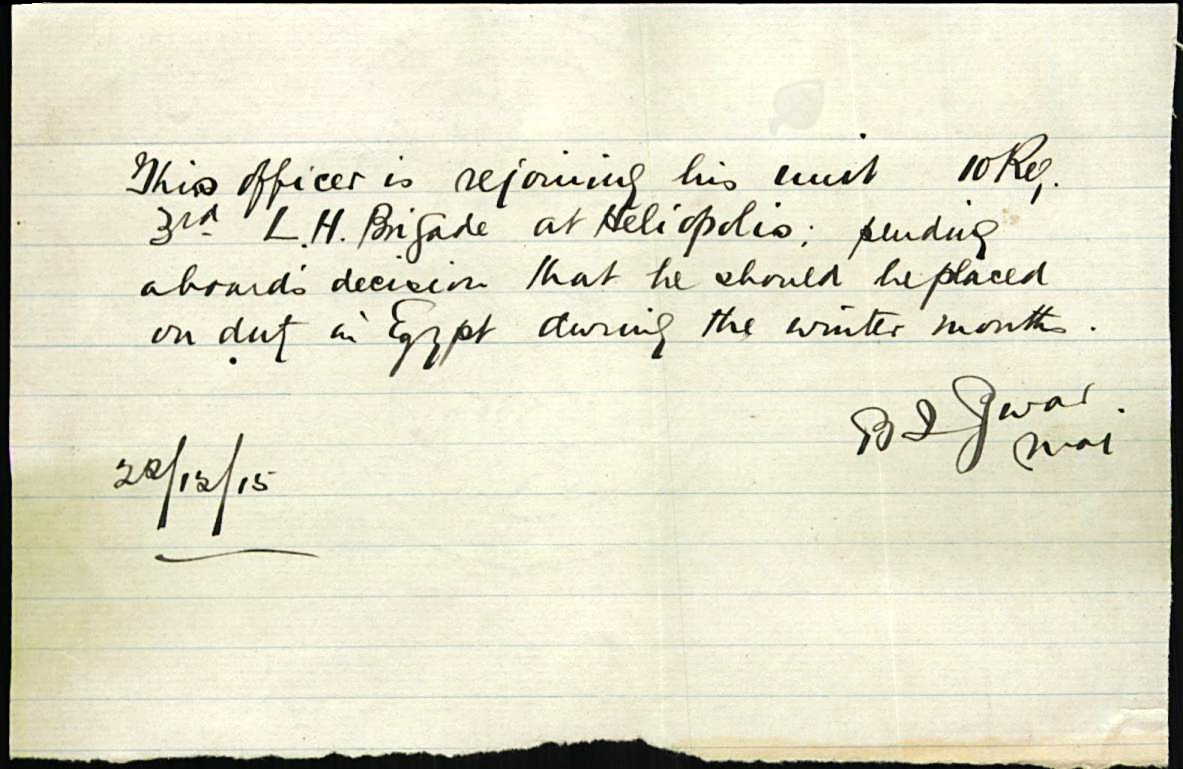 This officer is rejoining his unit 10 Reg.
3rd L.H. Brigade at Heliopolis; pending
aboard's decision that he should be placed
on duty in Egypt during the winter months.
B I
Maj
/12/15